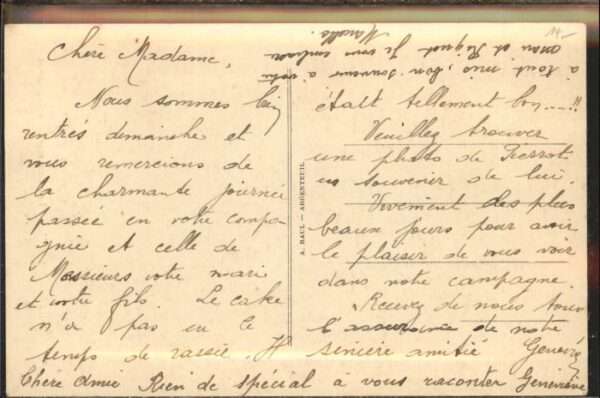 Chère Madame,
Nous sommes bien
rentrés dimanche et
vous remercions de
la charmante journée
passée en votre compa-
gnie et celle de
Messieurs votre mari
et votre fils. Le cake
n'a pas eu le
temps de rassir. Il
était tellement bon....!!
Veuillez trouver
une photo de Pierrot
en souvenir de lui.
Vivement des plus
beaux jours pour avoir
le plaisir de vous voir
dans notre campagne.
Recevez de nous tous
l'assurance de notre
sincère amitié
Chère amie Rien de spécial à vous raconter Geneviève
à tout mis, bon souvenir à votre
maman et Je vous embrasse
A. BAUL — ARGENTEUIL